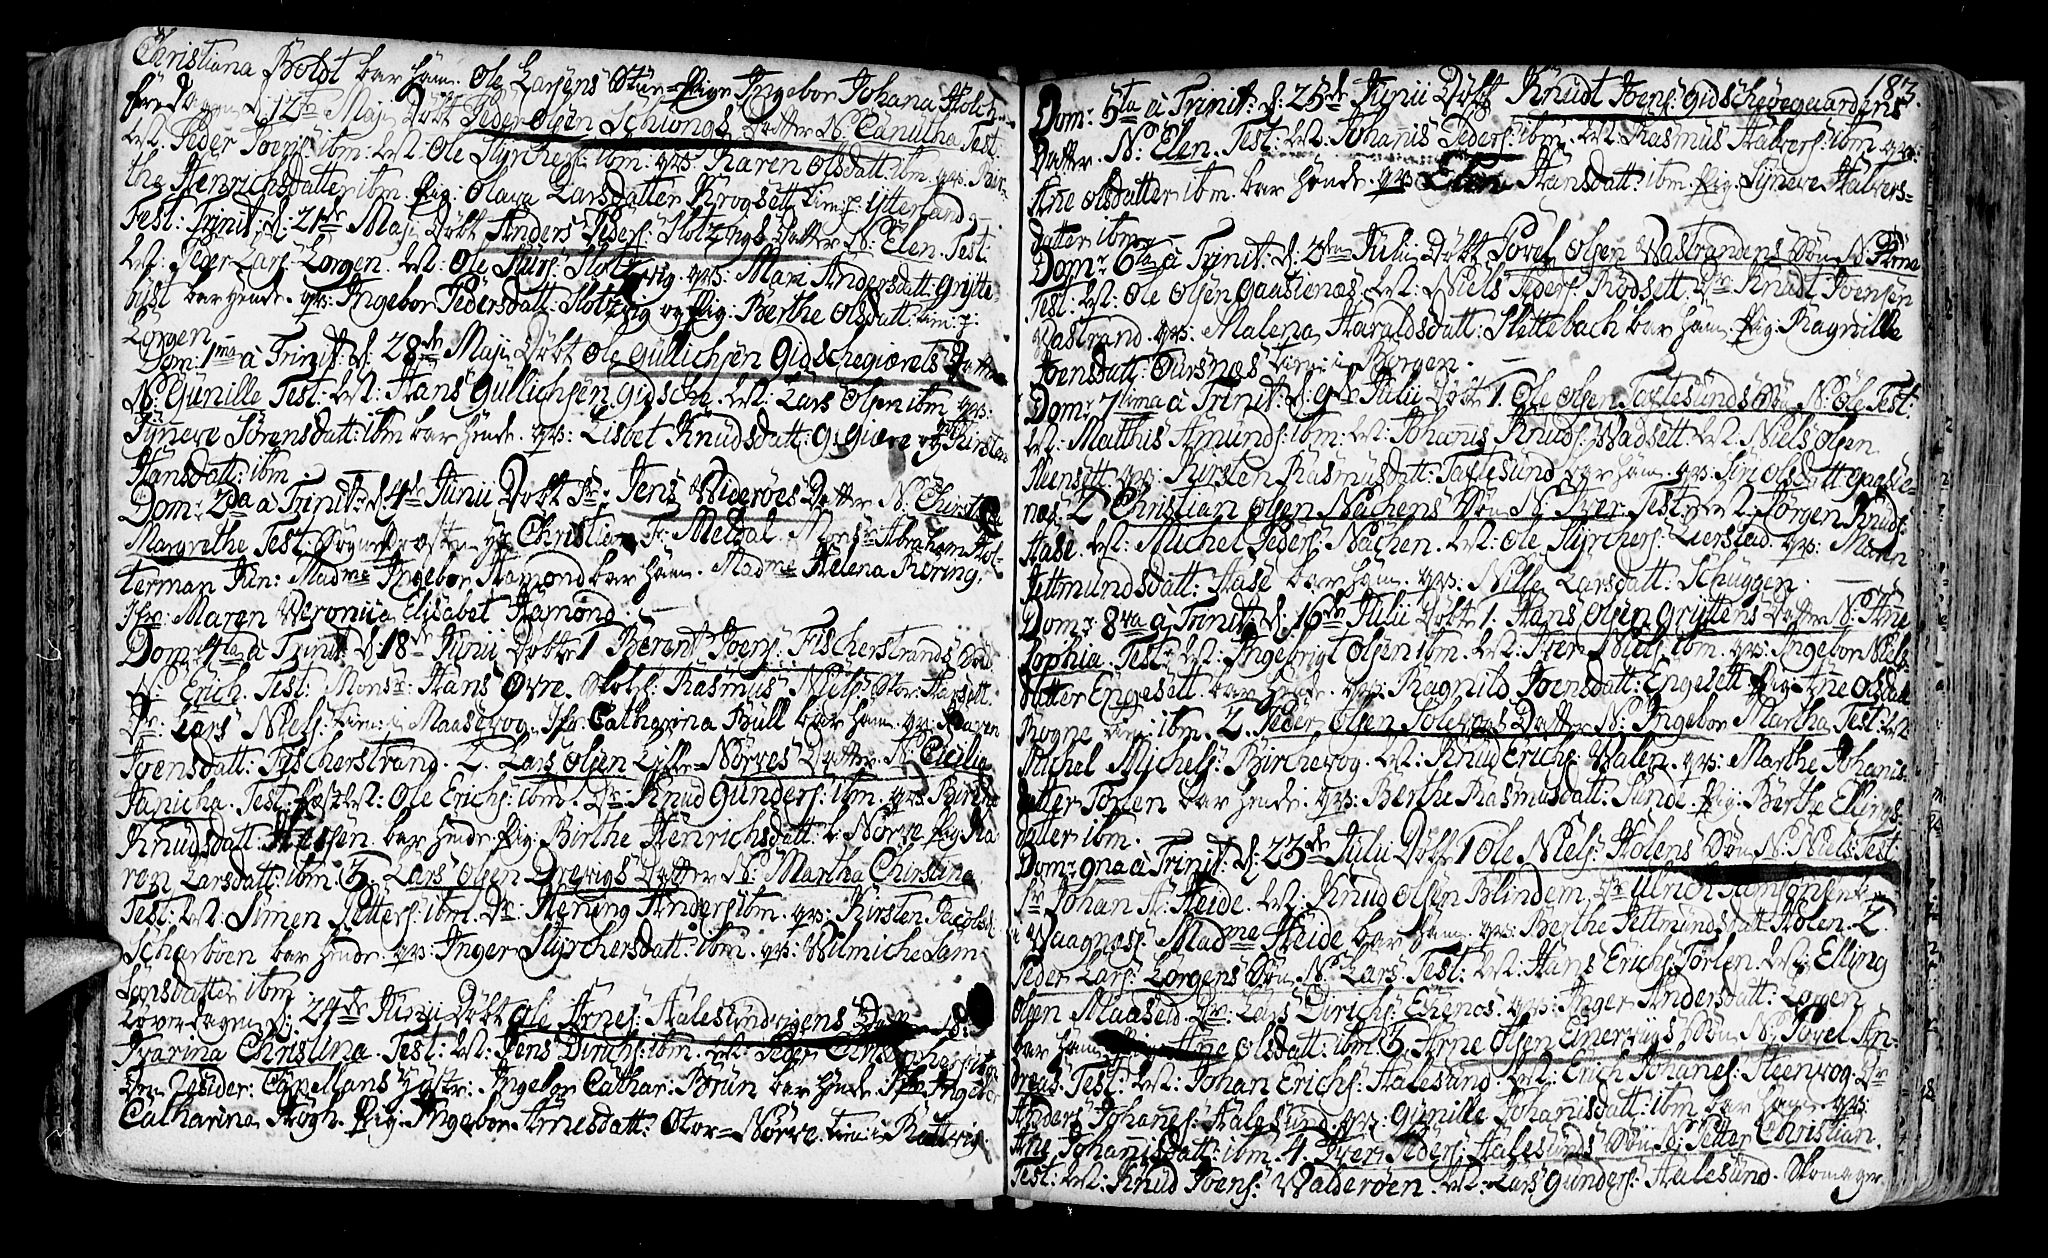 Christiana Boldt bar ham. Ole Larsens Stue-Pige Ingebor Johana Holch
fredagen d: 12te Maji Døbt Peder Olsen Schiongs Datter N: Canutha Test:
Ved. Peder Joens: ibm: Ved: Ole Styrchers: ibm: qvs: Karen Olsdatt: ibm. qvs: Bir-
the Henrichsdatter ibm. Pig: Olava Larsdatter Krogsett tien: Ytterland
Fest: Trinit: d: 21de Maji Døbt Anders Peders: Slotzvigs Datter N: Elen. Test:
Ved: Peder Lars: Lorgen. Ved: Ole Sturs: Slotzvig qvs: Mari Andersdatt: Grytte-
byst bar hende. qvs: Ingebor Pedersdatt: Slotzvig og Pig: Berthe Olsdatt: tien:
Lorgen
Dom: 1ma à Trinit: d: 28de Maji Døbt Ole Gullichsen Gidschegiærets Datter
N: Gunille Test: Ved: Hans Gullichsen Gidsche. Ved: Lars Olsen ibm qvs:
Syneve Sörensdatt: ibm bar hende. qvs: Lisbet Knudsdatt: G:giære og Kirsten
Hansdatt: ibm
Dom: 2da à Trinit: d: 4de Junii Døbt Sr: Jens Widerøes Datter N: Christina
Margrethe Test: Sogne Præsten Hr Christian Fr. Meldal. Monsr: Abraham Hol-
terman Jun: Madme Ingebor Hamond bar ham. Madme Helena Røring.
Jfr: Maren Veronica Elisabet Hamond. —
Dom: 4ta à Trinit: d: 18de Junii Døbt 1 Berent Joens: Fischerstrands Søn
N: Erich. Test: Monsr: Hans Øvre. Rasmus Niels: Stor-Harsett.
Dr: Lars Niels: tien: i Maasevog. Jfr: Catharina Bull bar ham. qvs: Karen
Joensdatt: Fischerstrand. 2. Lars Olsen Lille-Nörves Datter N: Cicilia
Janicha. Test: Ved: Ole Erichs: ibm. Dr: Knud Gunders: ibm. qvs: Birthe
Knudsdatt: Hessen bar hende Pig: Birthe Henrichsdatt: L: Nörve Pig: Ka-
ren Larsdatt: ibm 3. Lars Olsen Drevigs Datter N: Martha Christina.
Test: Ved: Simen Petters: ibm. Dr: Hening Anders: ibm. qvs: Kirsten Jacobsd:
Scharbøen bar hende. qvs: Inger Styrchersdatt: ibm. qvs: Wilmiche Sam-
sonsdatter ibm
Løverdagen d: 24de Junii Døbt Ole Arnes: Aalesundvigens Datter N:
Ivarina Christina. Test: Ved: Jens Dirichs: ibm. Ved: Peder
Ingebor Cathar: Brun bar hende Jfr Ingebor
Catharina Høgh. Pig: Ingebor Arnesdatt: Stor-Nörve. tien: i Rattvig
183.
Dom: 5ta à Trinit: d: 25de Junii Døbt Knudt Joens: Gidschøegaardens
Datter. N: Elen. Test: Ved: Johanis Peders: ibm. Ved: Rasmus Halvers: ibm qvs:
Ane Olsdatter ibm. bar hende. qvs: Elen Hansdatt: ibm. Pig: Syneve Halvers-
datter ibm —
Dom: 6ta à Trinit: d: 2den Julii Døbt Povel Olsen Vastrandens Søn N: Arne
Test: Ved: Ole Olsen Gaasenæs. Ved: Niels Peders: Rödsett. Dr: Knudt Joensen
Vastrand. qvs: Malena Haraldsdatt: Slettebach bar ham. Pig: Ragnille
Joensdatt: Tursnæs tien: i Borgen. —
Dom: 7tima à Trinit: d: 9de Julii Døbt 1. Ole Olsen Taftesunds Søn N: Ole Test:
Ved: Matthis Amunds: ibm: Ved: Johanis Knuds: Wadsett. Ved: Niels Olsen
Fleensett qvs: Kirsten Rasmusdatt: Taftesund bar ham. qvs: Siri Olsdatt: Gaasie-
næs. 2 Christian Olsen Nachens Søn N: Iver. Test: Ved: Jörgen Knuds:
Hase. Ved: Michel Peders: Nachen. Ved: Ole Styrchers: Lierstad. qvs: Maren
Jettmundsdatt: Hase bar ham. qvs: Nille Larsdatt: Schuggen. —
Dom: 8va à Trinit: d: 16de Julii Døbt 1. Hans Olsen Gryttens Datter N: Ane
Sophia. Test: Ved: Ingebrigt Olsen ibm. Ved: Iver Niels: ibm. qvs: Ingebor Niels-
datter Engesett. bar hende. qvs: Ragnild Joensdatt: Engesett Pig: Ane Olsdatt:
Rogne tien: ibm. 2. Peder Olsen Solevogs Datter N: Ingebor Martha Test: Ved:
Michel Michels: Birchevog. Ved: Knud Erichs: Walen. qvs: Marthe Johanis-
datter Torlen bar hende. qvs: Berthe Rasmusdatt: Sunde. Pig: Berthe Ellings-
datter ibm.
Dom: 9na à Trinit: d: 23de Julii Døbt 1 Ole Niels: Holens Søn N: Niels Test:
Sr: Johan Fr. Heide. Ved: Knud Olsen Blindem. Dr: Ulrich Samsonsen tien:
i Vaagnæs. Madme Heide bar ham. qvs: Berthe Jettmundsdatt: Holen. 2.
Peder Lars: Lorgens Søn N: Lars Test: Ved: Hans Erichs: Torlen. Ved: Elling
Olsen Maaseid. Dr: Lars Dirichs: Echenæs. qvs: Inger Andersdatt: Lorgen
bar ham. Ane Olsdatt: ibm 3. Arne Olsen Einervigs Søn N: Povel An-
dreas Test: Ved: Johan Erichs: Aalesund. Ved: Erich Johanes: Steenvog. Dr:
Anders Johanes: Aalesund. qvs: Gunille Johanisdatt: ibm bar ham. qvs:
Ane Johanisdatt: ibm. 4. Iver Peders: Aalesunds Søn N: Petter Christian.
Test: Ved: Knud Joens: Walderøen. Ved: Lars Gunders: Aalesund. Skomager